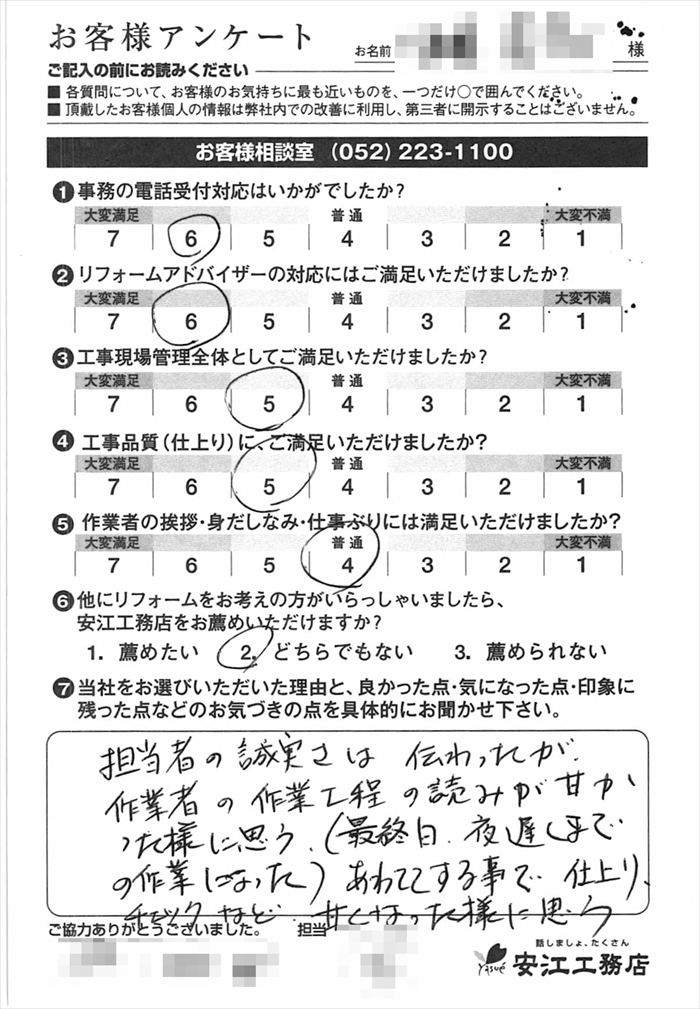 お客様アンケート
お名前 様
ご記入の前にお読みください
■ 各質問について、お客様のお気持ちに最も近いものを、一つだけ○で囲んでください。
■ 頂戴したお客様個人の情報は弊社内での改善に利用し、第三者に開示することはございません。
お客様相談室 (052) 223-1100
❶事務の電話受付対応はいかがでしたか?
大変満足 普通 大変不満
7 6 5 4 3 2 1
❷リフォームアドバイザーの対応にはご満足いただけましたか?
大変満足 普通 大変不満
7 6 5 4 3 2 1
❸工事現場管理全体としてご満足いただけましたか?
大変満足 普通 大変不満
7 6 5 4 3 2 1
❹工事品質(仕上り)に、ご満足いただけましたか?
大変満足 普通 大変不満
7 6 5 4 3 2 1
❺作業者の挨拶・身だしなみ・仕事ぶりには満足いただけましたか?
大変満足 普通 大変不満
7 6 5 4 3 2 1
❻他にリフォームをお考えの方がいらっしゃいましたら、
安江工務店をお薦めいただけますか?
1. 薦めたい 2. どちらでもない 3. 薦められない
❼当社をお選びいただいた理由と、良かった点・気になった点・印象に
残った点などのお気づきの点を具体的にお聞かせ下さい。
担当者の誠実さは 伝わったが、
作業者の作業工程の読みが甘か
った様に思う。(最終日、夜遅くまで
の作業になった)あわててする事で 仕上り、
チェックなど 甘くなった様に思う
ご協力ありがとうございました。 担当
話しましょ、たくさん
Yasue 安江工務店